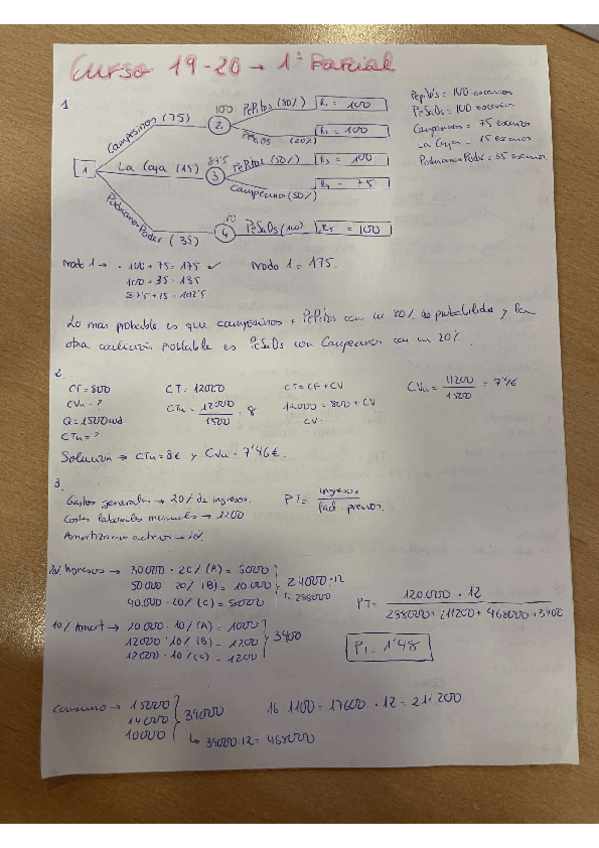 Curso 19-20 → 1º Parcial
1
Pepitos = 100 escaños
PeSaDs = 100 escaños
Campesinos = 75 escaños
La Caja = 15 escaños
PodemanosPoder = 35 escaños
Campesinos (75)
100
2
PePitos (80%)
R1 = 100
(20%)
R2 = 100
1
La Caja (15)
87'5
3
PePitos (50%)
R3 = 100
Campesinos (50%)
R4 = 75
(35)
4
PeSaDs (100)
R5 = 100
nodo 1 → · 100 + 75 = 175 ✓
nodo 1 = 175.
100 + 35 = 135
87'5 + 15 = 102'5
Lo mas probable es que campesinos + PePitos con un 80% de probabilidades y la
otra coalición probable es PeSaDs con Campesinos con un 20%.
2.
CF = 800
CVu = ?
Q = 1500 uds
CTu = ?
CT = 12000
CTu = 12000 / 1500 = 8
CT = CF + CV
12000 = 800 + CV
CV =
CVu = 11200 / 1500 = 7'46
Solucion → CTu = 8€ y CVu = 7'46€.
3.
Gastos generales → 20% de ingresos.
Costes laborales mensuales → 1100
PT = Ingresos / Fact. previos.
Ingresos → 30.000 · 20% (A) = 6000
50.000 · 20% (B) = 10.000
40.000 · 20% (C) = 8000
24000 · 12
= 288000
PT = 120.000 · 12 / 288000 + 211200 + 468000 + 3400
10% Amort → 10.000 · 10% (A) = 1000
12000 · 10% (B) = 1200
12000 · 10% (C) = 1200
3400
PT = 1'48
Consumo → 15000
14000
10000
39000
↳ 39000 · 12 = 468000
16 · 1100 = 17600 · 12 = 211.200